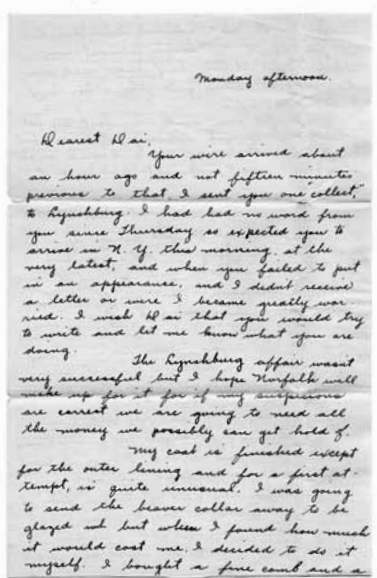 Monday afternoon.
Dearest Dai,
Your wire arrived about
an hour ago and not fifteen minutes
previous to that, I sent you one "collect,"
to Lynchburg. I had had no word from
you since Thursday so expected you to
arrive in N. Y. this morning, at the
very latest, and when you failed to put
in an appearance, and I didnt receive
a letter or wire I became greatly wor-
ried. I wish Dai that you would try
to write and let me know what you are
doing.
The Lynchburg affair wasnt
very successful but I hope Norfolk will
make up for it for if my suspicions
are correct we are going to need all
the money we possibly can get hold of.
My coat is finished except
for the outer lining and for a first at-
tempt, is quite unusual. I was going
to send the beaver collar away to be
glazed but when I found how much
it would cost me, I decided to do it
myself. I bought a fine comb and a